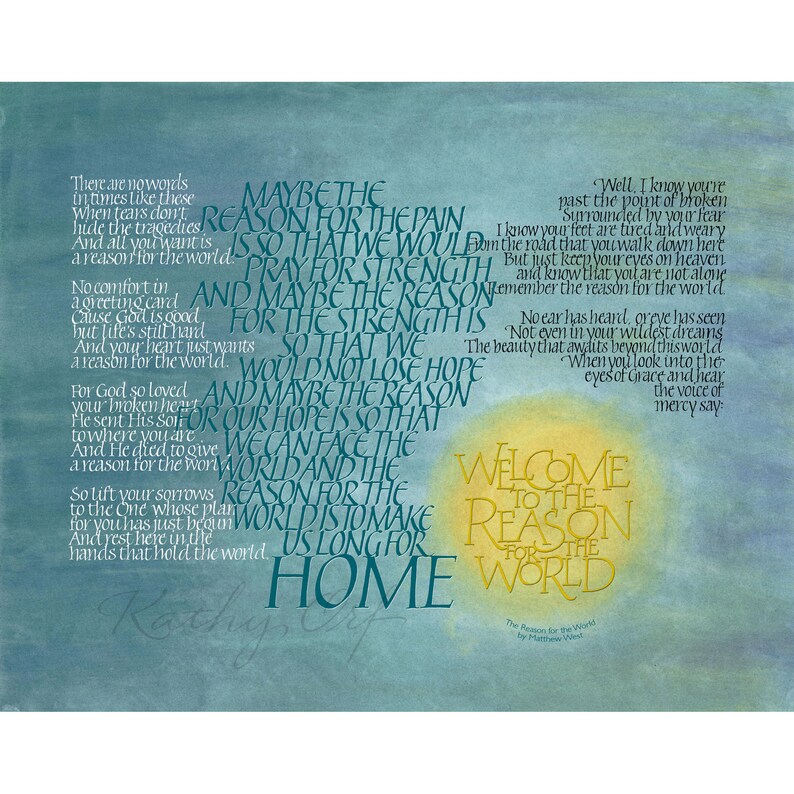 There are no words
in times like these
When tears don't
hide the tragedies
And all you want is
a reason for the world.
No comfort in
a greeting card
Cause God is good
but life's still hard
And your heart just wants
a reason for the world.
For God so loved
your broken heart
He sent His Son
to where you are
And He died to give
a reason for the world
So lift your sorrows
to the One whose plan
for you has just begun
And rest here in the
hands that hold the world.
MAYBE THE
REASON FOR THE PAIN
IS SO THAT WE WOULD
PRAY FOR STRENGTH
AND MAYBE THE REASON
FOR THE STRENGTH IS
SO THAT WE
WOULD NOT LOSE HOPE
AND MAYBE THE REASON
FOR OUR HOPE IS SO THAT
WE CAN FACE THE
WORLD AND THE
REASON FOR THE
WORLD IS TO MAKE
US LONG FOR
HOME
Well, I know you're
past the point of broken
Surrounded by your fear
I know your feet are tired and weary
From the road that you walk down here
But just keep your eyes on heaven
and know that you are not alone
Remember the reason for the world
No ear has heard, or eye has seen
Not even in your wildest dreams
The beauty that awaits beyond this world
When you look into the
eyes of Grace and hear
the voice of
mercy say:
WELCOME
TO THE
REASON
FOR THE
WORLD
The Reason for the World
by Matthew West
Kathy Orf